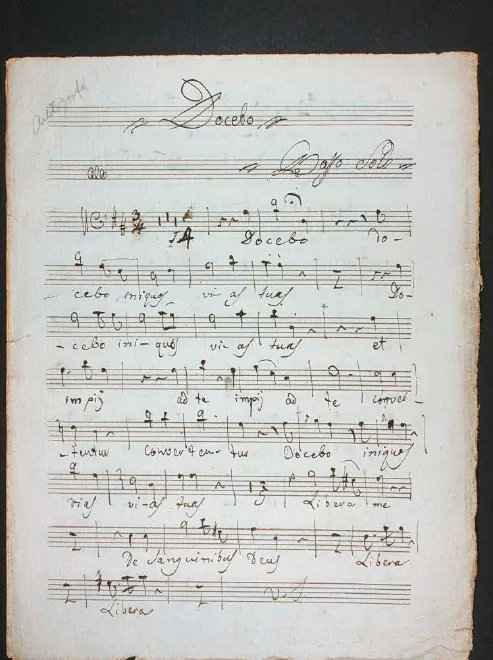 Docebo
Basso Solo
14 Docebo do-
cebo iniquos vi-as tuas Do-
-cebo ini-quos vi-as tuas et
impij ad te impij ad te conver-
-tentur Conver-ten-tur Docebo iniquos
vias vi-as tuas Libera me
De Sanguinibus Deus Libera
Libera